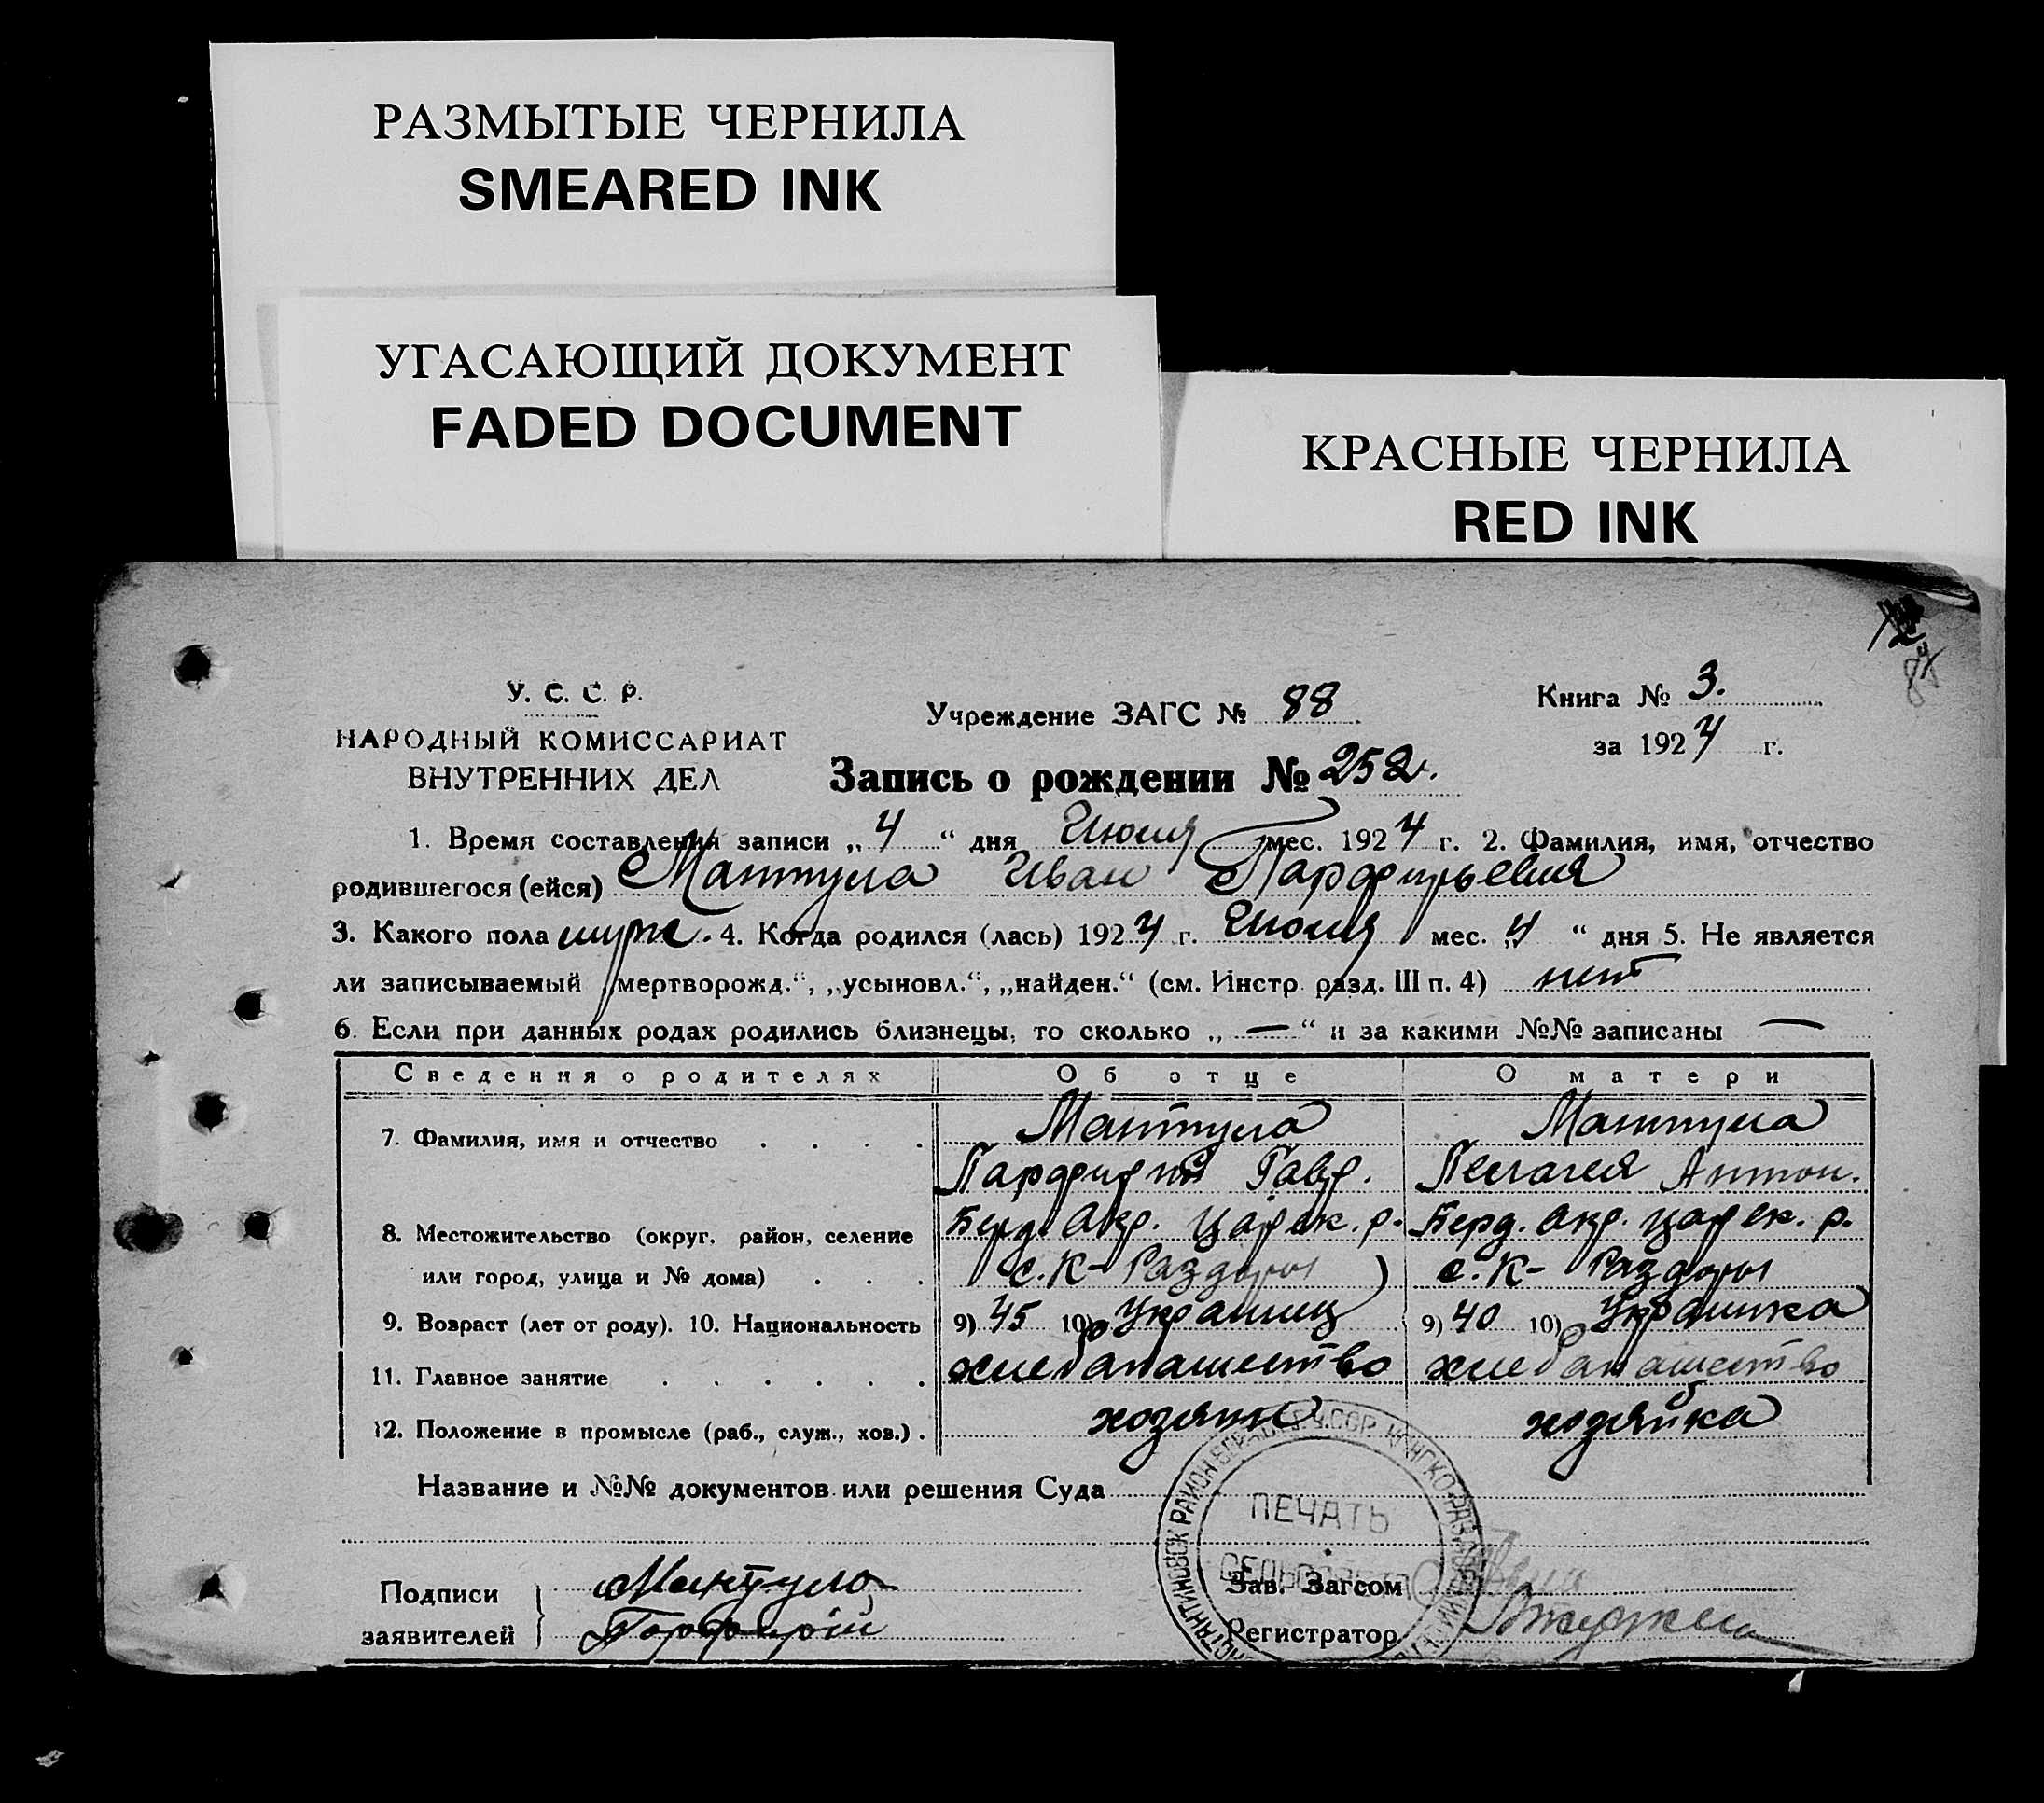 РАЗМЫТЫЕ ЧЕРНИЛА
SMEARED INK
УГАСАЮЩИЙ ДОКУМЕНТ
FADED DOCUMENT
КРАСНЫЕ ЧЕРНИЛА
RED INK
У. С. С. Р.
НАРОДНЫЙ КОМИССАРИАТ
ВНУТРЕННИХ ДЕЛ
Учреждение ЗАГС № 88
Книга № 3.
за 1924 г.
Запись о рождении № 252.
1. Время составления записи „4“ дня Июля мес. 1924 г. 2. Фамилия, имя, отчество
родившегося (ейся) Мантула Иван Парфирьевич
3. Какого пола муж. 4. Когда родился (лась) 1924 г. Июля мес. „4“ дня 5. Не является
ли записываемый „мертворожд.“, „усыновл.“, „найден.“ (см. Инстр. разд. III п. 4) нет
6. Если при данных родах родились близнецы, то сколько „—“ и за какими №№ записаны —
Сведения о родителях Об отце О матери
7. Фамилия, имя и отчество . . . . Мантула Мантула
Парфирий Гавр. Пелагея Антон.
8. Местожительство (округ, район, селение Берд. Окр. Царек. р. Берд. Окр. Царек. р.
или город, улица и № дома) . . . с. К-Раздоры с. К-Раздоры
9. Возраст (лет от роду). 10. Национальность 9) 45 10) Украинец 9) 40 10) Украинка
11. Главное занятие . . . . . . хлебопашество хлебопашество
12. Положение в промысле (раб., служ., хоз.) . хозяин хозяйка
Название и №№ документов или решения Суда
ПЕЧАТЬ
Подписи Мантула Зав. Загсом
заявителей Парфирій Регистратор